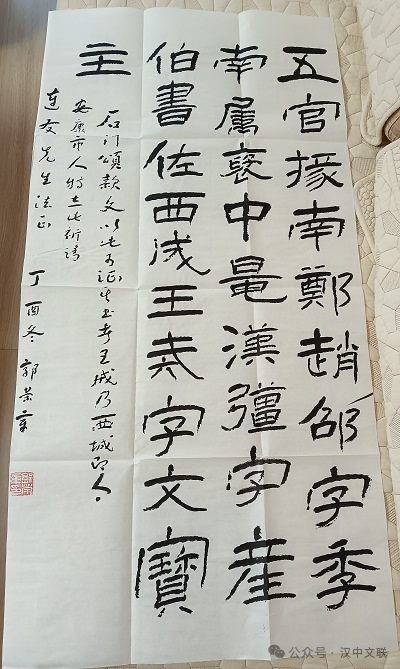 五官掾南鄭趙邵字季
南属褒中鼂漢彊字産
伯書佐西成王戒字文寶
主
石门頌款文以考王戒乃西城即今
安康市人特书此祈请
連友先生法正
丁酉冬 郭荣章
公众号·汉中文联